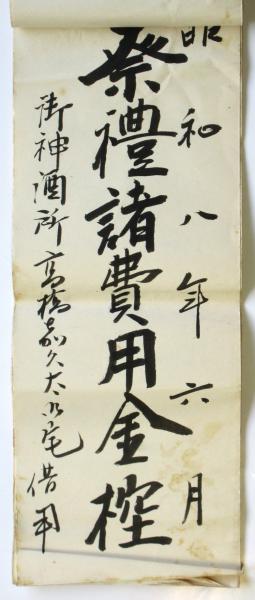 昭和八年六月
祭禮諸費用金控
御神酒所高橋嘉久太氏宅借用